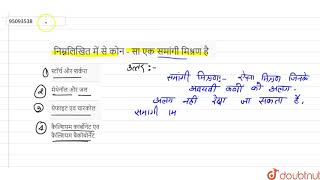 95093538
निम्नलिखित में से कौन - सा एक समांगी मिश्रण है
उत्तर :-
1 स्टॉर्च और सर्करा
2 मेथेनॉल और जल
3 ग्रेफाइट एवं चारकोल
4 कैल्शियम कार्बोनेट एवं
कैल्शियम बैकार्बोनेट
समांगी मिश्रण - ऐसा मिश्रण जिनके
अवयवी कणों को अलग-
अलग नही देखा जा सकता है.
समांगी
doubtnut